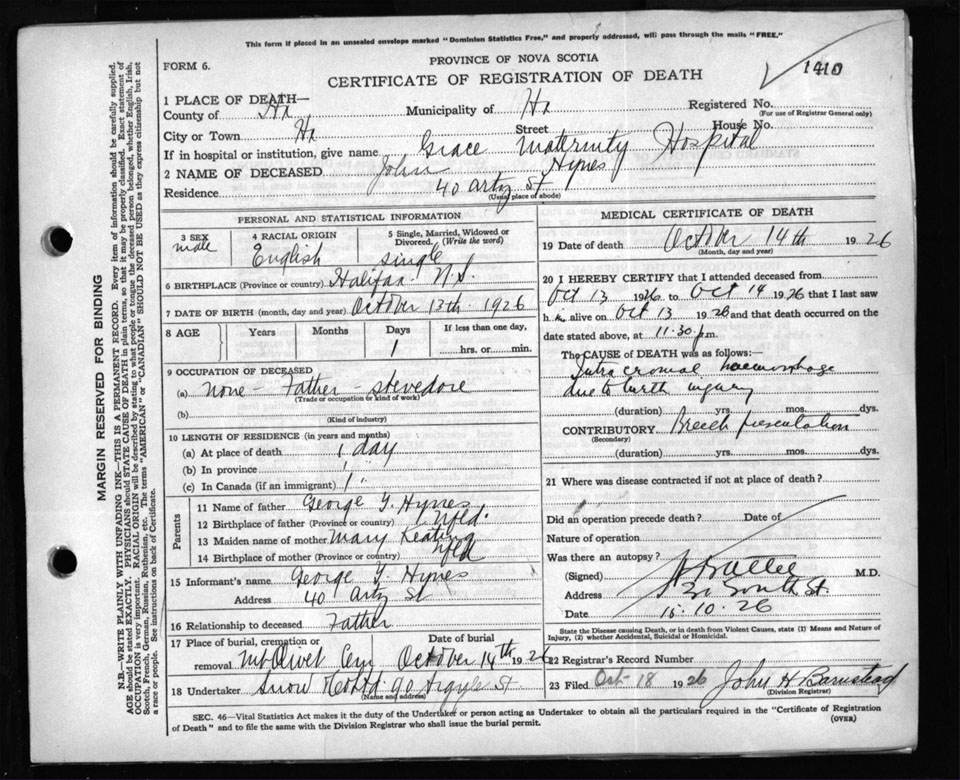 This form if placed in an unsealed envelope marked "Dominion Statistics Free," and properly addressed, will pass through the mails "FREE."
FORM 6.
PROVINCE OF NOVA SCOTIA
CERTIFICATE OF REGISTRATION OF DEATH
1410
1 PLACE OF DEATH—
County of Hx Municipality of Hx Registered No.
(For use of Registrar General only)
City or Town Hx Street House No.
If in hospital or institution, give name Grace Maternity Hospital
2 NAME OF DECEASED John Hynes
Residence 40 Artz St
(Usual place of abode)
PERSONAL AND STATISTICAL INFORMATION
3 SEX male
4 RACIAL ORIGIN English
5 Single, Married, Widowed or Divorced. (Write the word) single
6 BIRTHPLACE (Province or country) Halifax N.S.
7 DATE OF BIRTH (month, day and year) October 13th 1926
8 AGE Years Months Days If less than one day,
1 hrs. or min.
9 OCCUPATION OF DECEASED
(a) None - Father - stevedore
(Trade or occupation or kind of work)
(b)
(Kind of industry)
10 LENGTH OF RESIDENCE (in years and months)
(a) At place of death 1 day
(b) In province 1 "
(c) In Canada (if an immigrant) 1 "
Parents
11 Name of father George Y. Hynes
12 Birthplace of father (Province or country) Nfld.
13 Maiden name of mother Mary Keating
14 Birthplace of mother (Province or country) Nfld
15 Informant's name George Y. Hynes
Address 40 Artz St
16 Relationship to deceased Father
17 Place of burial, cremation or removal Mt Olivet Cem Date of burial October 14th 1926
18 Undertaker Snow &Co Ltd 90 Argyle St
(Name and address)
MEDICAL CERTIFICATE OF DEATH
19 Date of death October 14th 1926
(Month, day and year)
20 I HEREBY CERTIFY that I attended deceased from
Oct 13 1926 to Oct 14 1926 that I last saw
h im alive on Oct 13 1926 and that death occurred on the
date stated above, at 11.30 p.m.
The CAUSE OF DEATH was as follows:
Intra cranial haemorrhage
due to birth injury
(duration) yrs. mos. dys.
CONTRIBUTORY Breech presentation
(Secondary)
(duration) yrs. mos. dys.
21 Where was disease contracted if not at place of death?
Did an operation precede death? Date of
Nature of operation
Was there an autopsy?
(Signed) M.D.
Address South St.
Date 15-10-26
State the Disease causing Death, or in death from Violent Causes, state (1) Means and Nature of
Injury, (2) whether Accidental, Suicidal or Homicidal.
22 Registrar's Record Number
23 Filed Oct-18 1926 John H Barnstead
(Division Registrar)
SEC. 46—Vital Statistics Act makes it the duty of the Undertaker or person acting as Undertaker to obtain all the particulars required in the "Certificate of Registration
of Death" and to file the same with the Division Registrar who shall issue the burial permit.
(OVER)
MARGIN RESERVED FOR BINDING
N.B.—WRITE PLAINLY WITH UNFADING INK—THIS IS A PERMANENT RECORD. Every item of information should be carefully supplied.
AGE should be stated EXACTLY. PHYSICIANS should STATE CAUSE OF DEATH in plain terms, so that it may be properly classified. Exact statement of
OCCUPATION is very important. RACIAL ORIGIN will be described by stating to what people or tongue the deceased person belonged, whether English, Irish,
Scotch, French, German, Russian, Ruthenian, etc. The terms "AMERICAN" or "CANADIAN" SHOULD NOT BE USED as they express citizenship but not
a race or people. See instructions on back of Certificate.